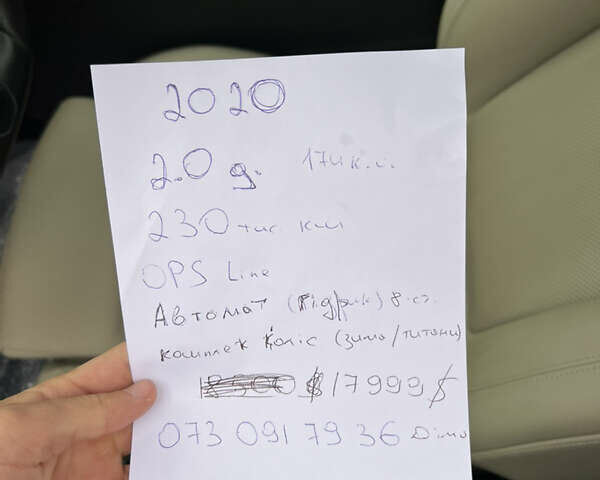 2020
2.0 д. 174 к.с.
230 тис км
OPS Line
Автомат (гідрик) 8.ст.
комплек коліс (зима/титани)
17999$
073 091 79 36 Діма